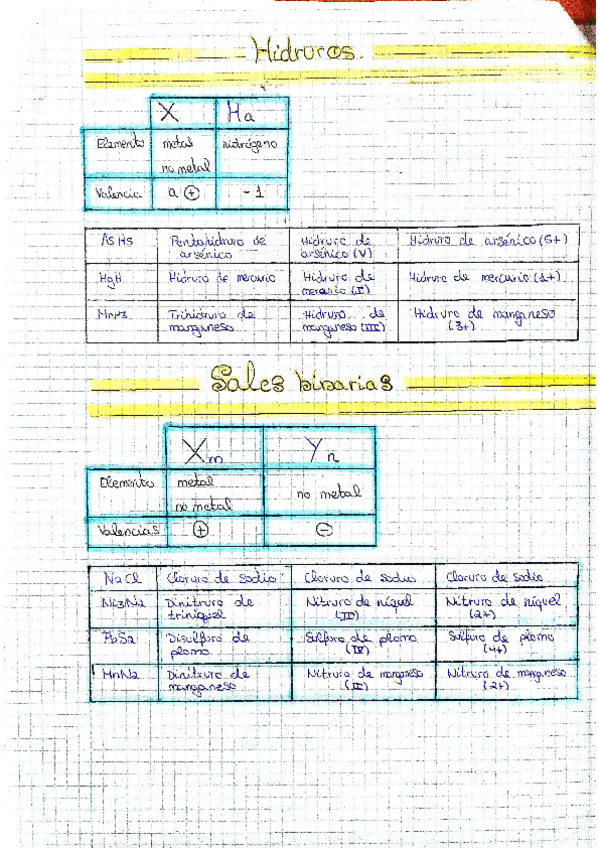 Hidruros.
X Ha
Elemento metal hidrógeno
no metal
Valencia a + -1
AsH5 Pentahidruro de Hidruro de Hidruro de arsénico (5+)
arsénico arsénico (V)
HgH Hidruro de mercurio Hidruro de Hidruro de mercurio (1+)
mercurio (I)
MnH3 Trihidruro de Hidruro de Hidruro de manganeso
manganeso manganeso (III) (3+)
Sales binarias
Xm Yn
Elemento metal no metal
no metal
Valencias + -
NaCl Cloruro de sodio Cloruro de sodio Cloruro de sodio
Ni3N2 Dinitruro de Nitruro de níquel Nitruro de níquel
triníquel (II) (2+)
PbS2 Disulfuro de Sulfuro de plomo Sulfuro de plomo
plomo (IV) (4+)
MnN2 Dinitruro de Nitruro de manganeso Nitruro de manganeso
manganeso (II) (2+)